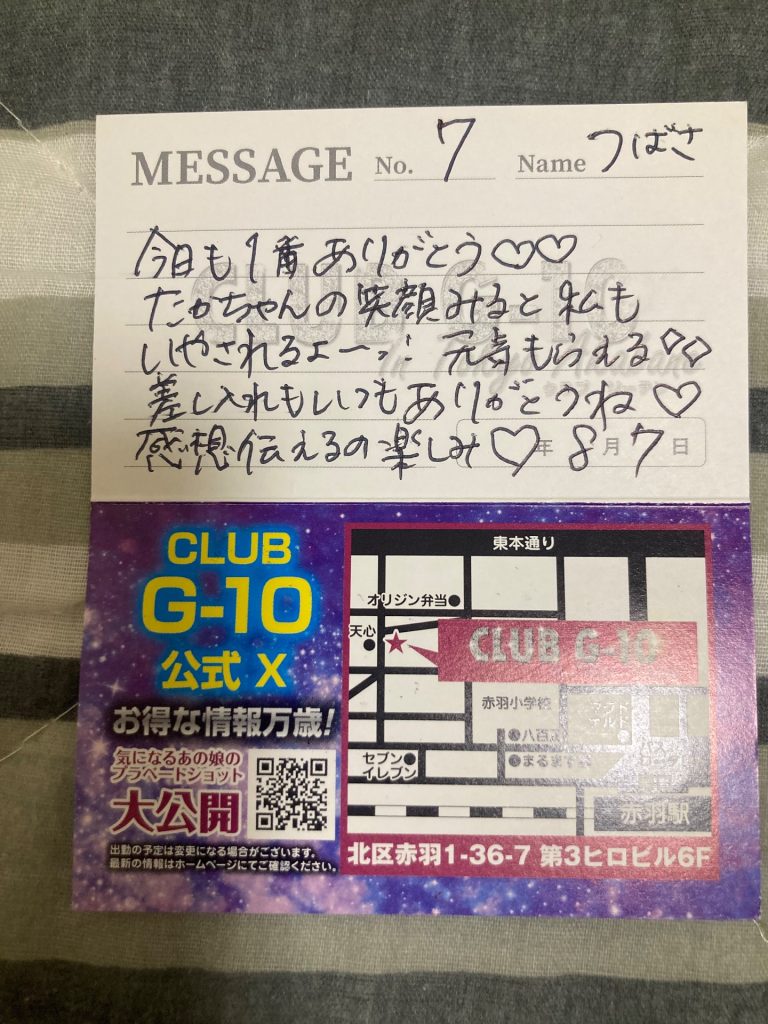 MESSAGE No. 7 Name つばさ
今日も1番ありがとう♡♡
たかちゃんの笑顔みると私も
いやされるよーっ! 元気もらえる
差し入れもいつもありがとうね♡
感想伝えるの楽しみ♡
年 8月7日
CLUB G-10
CLUB
G-10
公式 X
お得な情報万歳!
気になるあの娘の
プラベートショット
大公開
出勤の予定は変更になる場合がございます。
最新の情報はホームページにてご確認ください。
東本通り
オリジン弁当
天心
CLUB G-10
赤羽小学校
セブン
イレブン
赤羽駅
北区赤羽1-36-7 第3ヒロビル6F